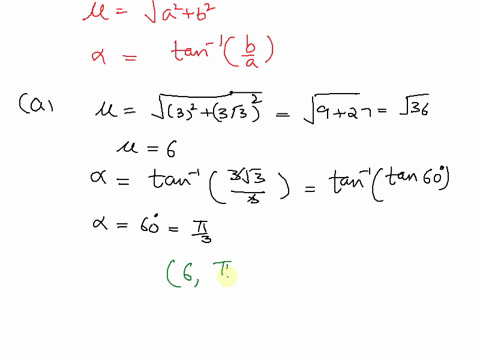 μ = √a²+b²
α = tan⁻¹(b/a)
(a) μ = √(3)²+(3√3)² = √9+27 = √36
μ = 6
α = tan⁻¹(3√3/3) = tan⁻¹(tan 60°)
α = 60° = π/3
(6, π